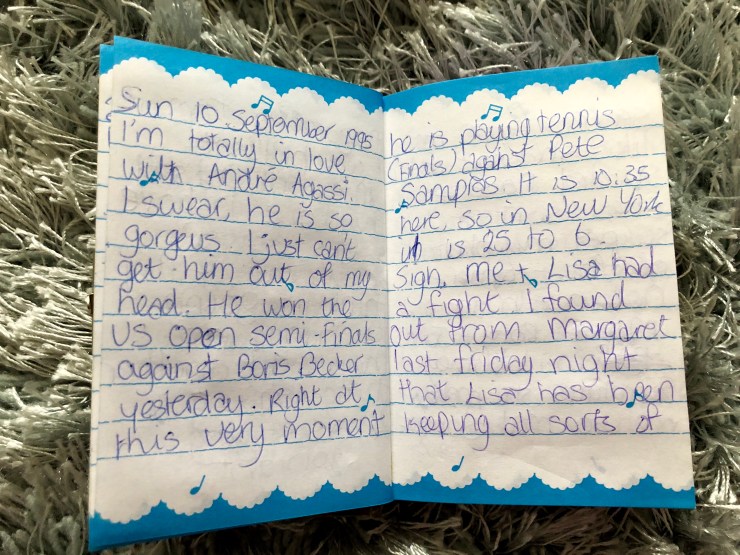 Sun 10 September 1995
I'm totally in love
with André Agassi.
I swear, he is so
gorgeus. I just can't
get him out of my
head. He won the
US Open semi-finals
against Boris Becker
yesterday. Right at
this very moment
he is playing tennis
(finals) against Pete
Sampras. It is 10:35
here, so in New York
it is 25 to 6.
Sigh, me + Lisa had
a fight. I found
out from Margaret
last friday night
that Lisa has been
keeping all sorts of